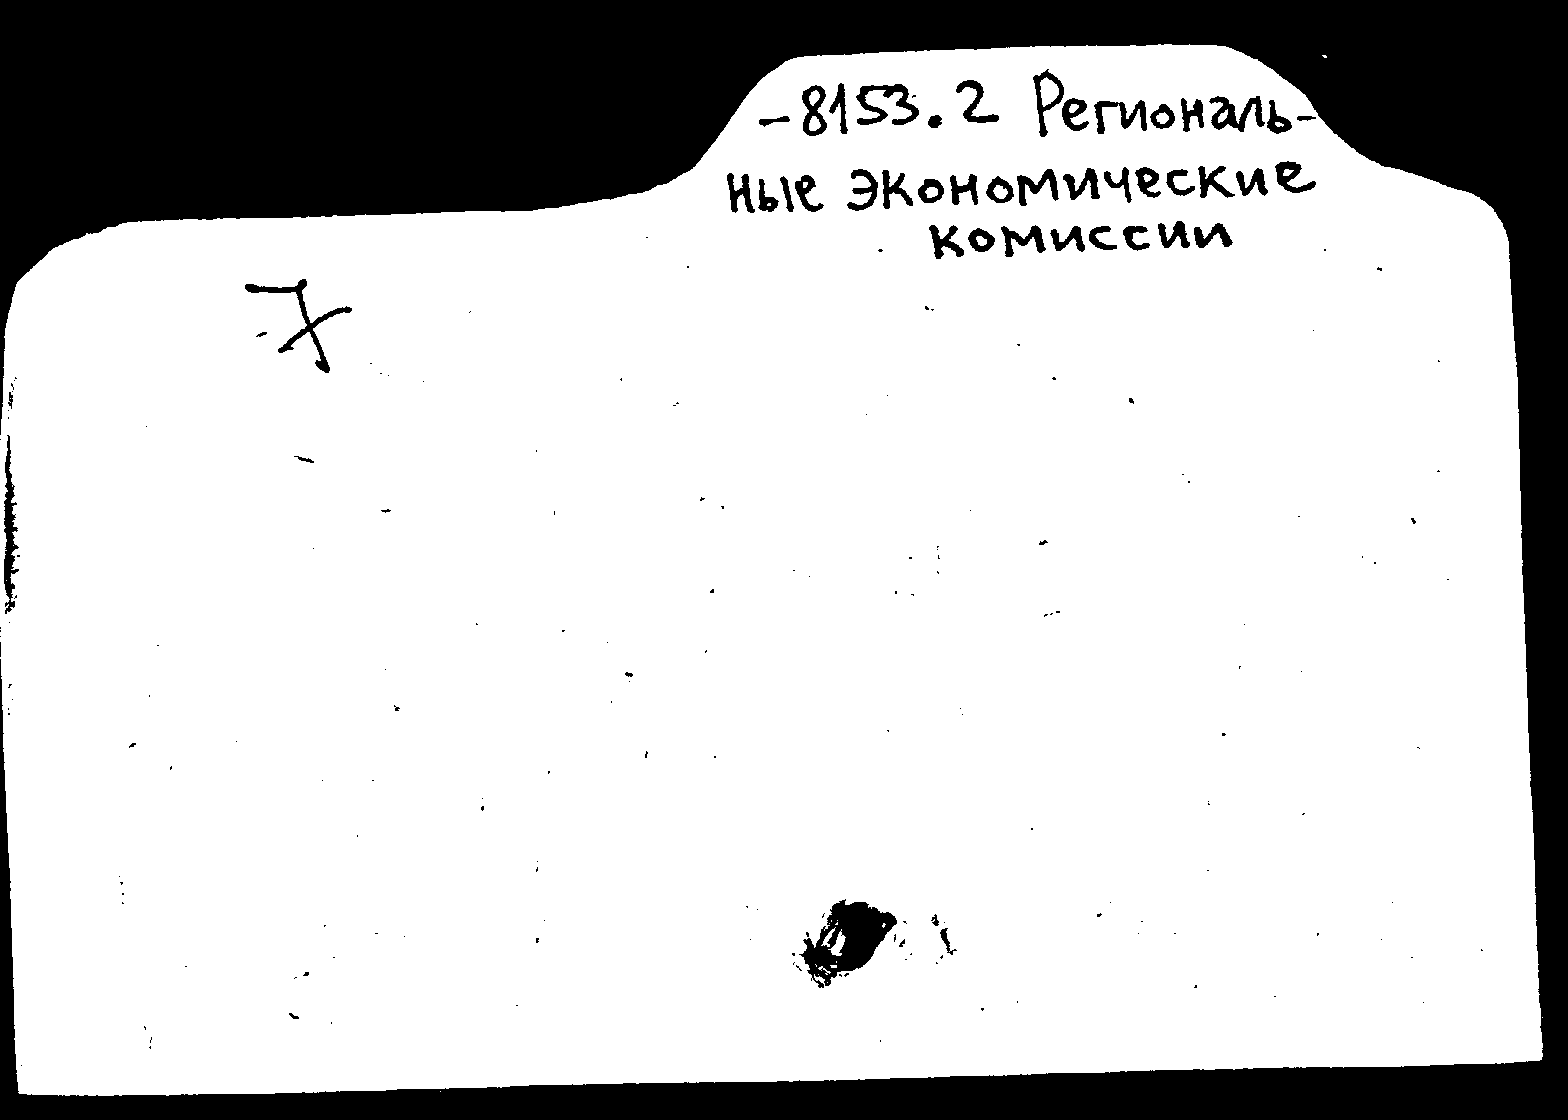 -8153.2 Региональ-
ные экономические
комиссии
7